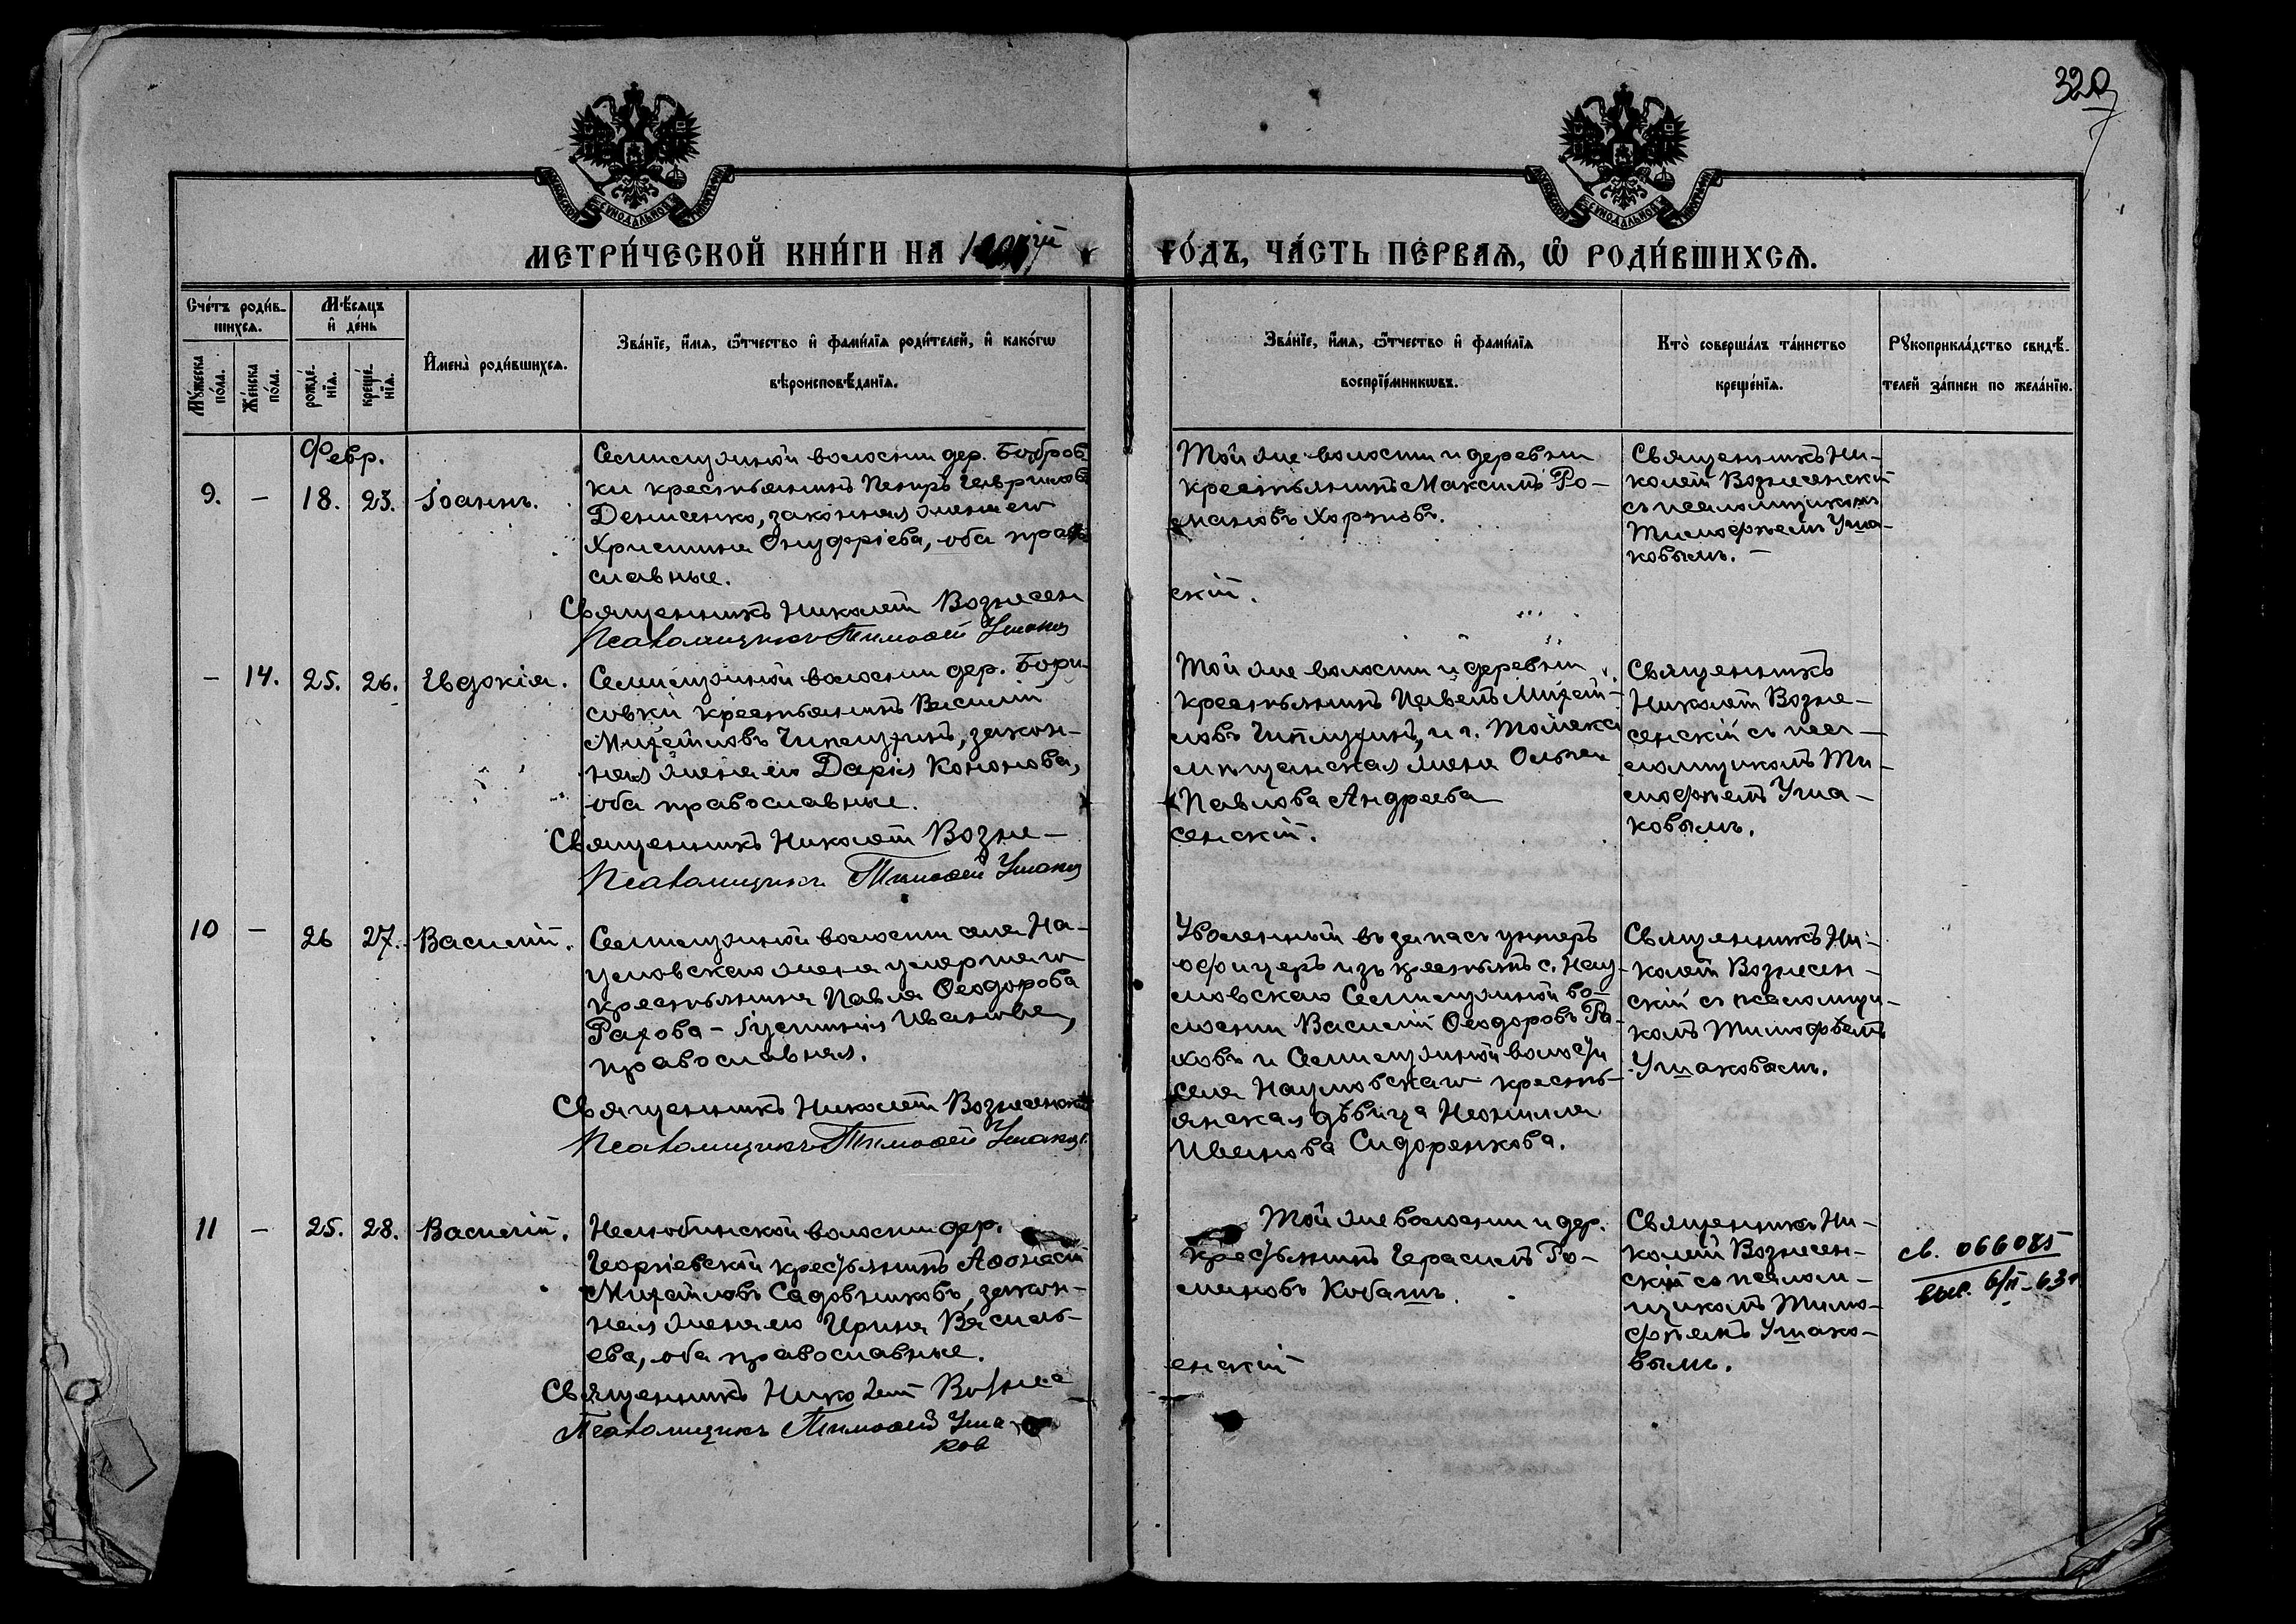 320
МЕТРИ́ЧЕСКОЙ КНИ́ГИ НА
ГО́ДЪ, ЧА́СТЬ ПЕ́РВАЯ, Ѡ҆ РОДИ́ВШИХСЯ.
Сче́тъ роди́в-
шихся.
Мꙋ́жеска по́ла.
Же́нска по́ла.
Мѣ́сяцъ и҆ де́нь
рожде́-
нїя.
креще́-
нїя.
И҆мена̀ роди́вшихся.
Зва́нїе, и҆́мя, ѻ҆́тчество и҆ фами́лїя роди́телей, и҆ како́гѡ
вѣроисповѣ́данїя.
Зва́нїе, и҆́мя, ѻ҆́тчество и҆ фами́лїя
воспрїе́мникѡвъ.
Кто̀ соверша́лъ та́инство
креще́нїя.
Рꙋкоприкла́дство свидѣ́-
телей за́писи по жела́нїю.
Февр.
9. – 18. 23. Іоаннъ.
Семилужной волости дер. Бобров
ки крестьянинъ Петръ Гавриловъ
Денисенко, законная жена его
Христина Онуфріева, оба право
славные.
Священникъ Николай Вознесен
Псаломщикъ Тимоѳей Ушаковъ
Той же волости и деревни
крестьянинъ Максимъ Ро-
мановъ Хорьковъ.
скій.
Священникъ Ни-
колай Вознесенскій
съ псаломщикомъ
Тимофѣемъ Уша-
ковымъ. –
– 14. 25. 26. Евдокія.
Семилужной волости дер. Бори-
совки крестьянинъ Василій
Михайловъ Чипаузинъ, закон-
ная жена его Дарія Кононова,
оба православные.
Священникъ Николай Возне-
Псаломщикъ Тимоѳей Ушаковъ
Той же волости и деревни
крестьянинъ Павелъ Михай-
ловъ и г. Томска
мѣщанская жена Ольга
Павлова Андреева
сенскій.
Священникъ
Николай Возне-
сенскій съ пса-
ломщикомъ Ти-
мофѣемъ Уша-
ковымъ.
10 – 26 27. Василій.
Семилужной волости села На-
умовскаго жена умершаго
крестьянина Павла Ѳеодорова
Рахова – Іустинія Иванова,
православная.
Священникъ Николай Вознесенскій
Псаломщикъ Тимоѳей Ушаковъ.
Уволенный въ запасъ унтеръ
офицеръ изъ крестьянъ с. Нау-
мовскаго Семилужной во-
лости Василій Ѳеодоровъ Ра-
ховъ и Семилужной волости
села Наумовскаго кресть-
янская дѣвица Неонилла
Иванова Сидоренкова.
Священникъ Ни-
колай Вознесен-
скій съ псаломщи-
комъ Тимофѣемъ
Ушаковымъ.
11 – 25. 28. Василій.
Нелюбинской волости дер.
Георгіевской крестьянинъ Аѳонасій
Михайловъ Садовниковъ, закон-
ная жена его Ирина Василь-
ева, оба православные.
Священникъ Николай Вознес
Псаломщикъ Тимоѳей Уша
ков
Той же волости и дер.
крестьянинъ Герасимъ Ро-
мановъ Кобашъ.
енскій
Священникъ Ни-
колай Вознесен-
скій съ псалом-
щикомъ Тимо-
фѣемъ Ушако-
вымъ.
св. 066085
выс. 6/II-63 г